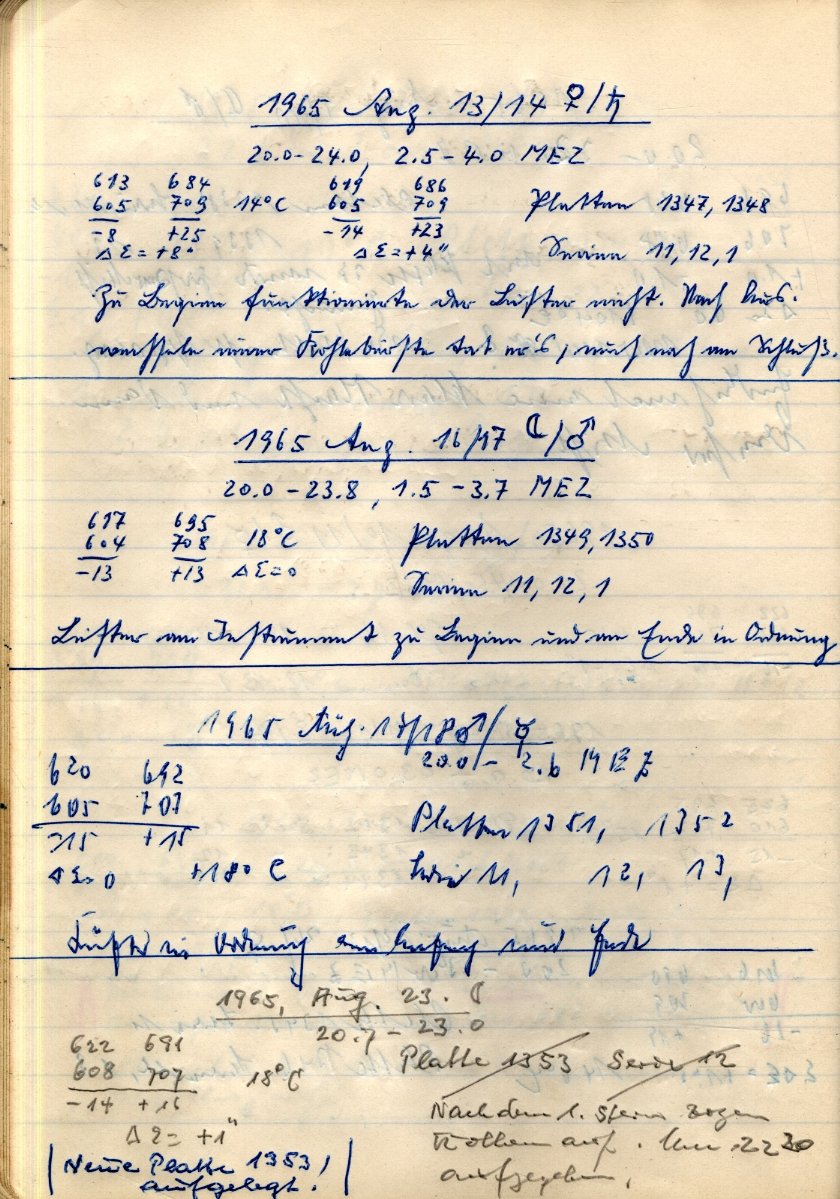 1965 Aug. 13/14 ♀/♄
20.0-24.0, 2.5-4.0 MEZ
613 684 619 686
605 709 14°C 605 709 Platten 1347, 1348
-8 +25 -14 +23
ΔΣ=+8" ΔΣ=+4" Serien 11, 12, 1
Zu Beginn funktionierte der Lüfter nicht. Nach Aus-
wechseln einer Kohlebürste tat er's, auch noch am Schluß.
1965 Aug. 16/17 ☾/♂
20.0-23.8, 1.5-3.7 MEZ
617 695
604 708 18°C Platten 1349, 1350
-13 +13 ΔΣ=0
Serien 11, 12, 1
Lüfter am Instrument zu Beginn und am Ende in Ordnung
1965 Aug. 17/18 ♂/☿
20.0 - 2.6 MEZ
620 692
605 707 Platten 1351, 1352
-15 +15
ΔΣ=0 +18° C Serie 11, 12, 13,
Lüfter in Ordnung am Anfang und Ende
1965, Aug. 23. ☾
20.7-23.0
622 691
608 707 18°C Platte 1353 Serie 12
-14 +16
ΔΣ= +1"
Nach dem 1. Stern zogen
Wolken auf. Um 22 30
aufgegeben.
Neue Platte 1353!
aufgelegt.